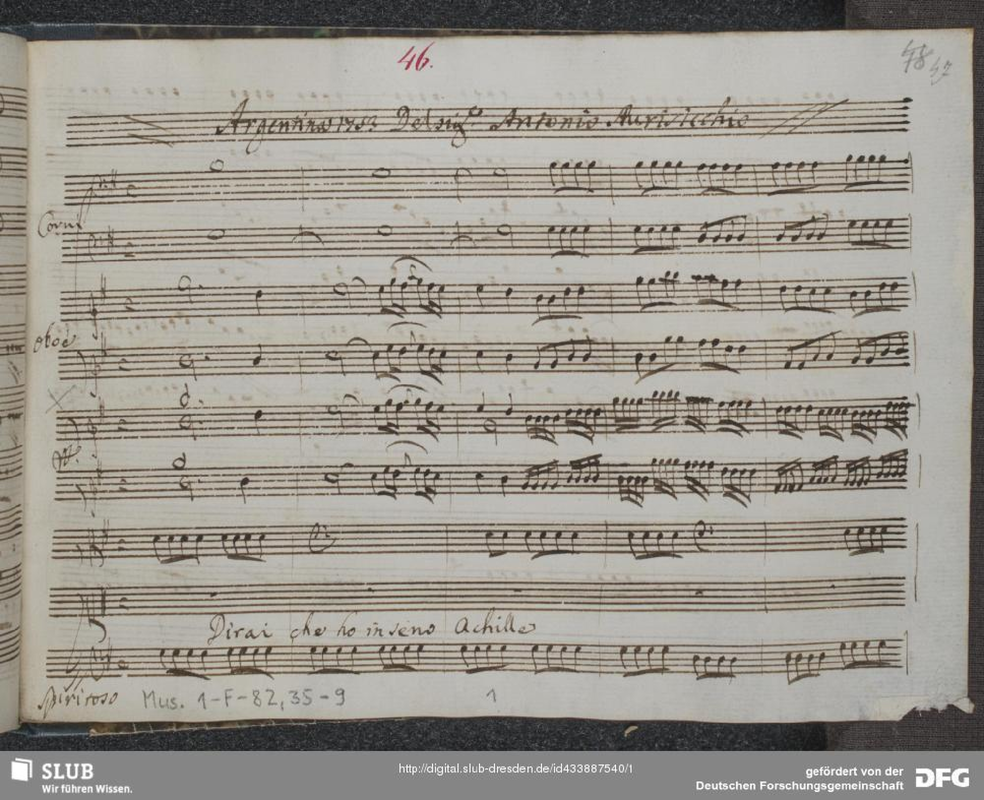 46.
48 47
Argentina 1753 Del sig.e Antonio Aurisicchio
Corni
oboè
Dirai che ho in seno Achille
Spiritoso
Mus. 1-F-82,35-9
1
SLUB
Wir führen Wissen.
http://digital.slub-dresden.de/id433887540/1
gefördert von der
Deutschen Forschungsgemeinschaft
DFG